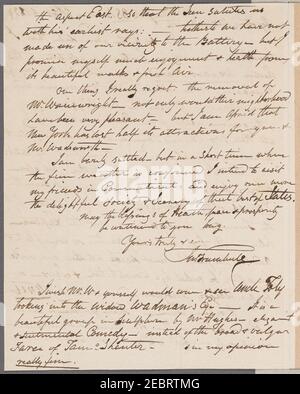 the aspect East. so that the Sun salutes us
with his earliest rays: — hitherto we have not
made use of our vicinity to the Battery — but I
promise myself much enjoyment & health from
its beautiful walks & fresh Air.
Our things I really regret the removal of
Mr. Wainwright — not only would their neighborhood
have been very pleasant — but I am afraid that
New York has lost half its attractions for you &
Mr. Wadsworth —
I am barely settled — but in a short time when
the fine weather is I intend to visit
my friends in Connecticut and enjoy once more
the delightful Society & Scenery of that best of States.
May the blessings of Heaven peace & prosperity
be continued to you long
Yours truly &c
Jn Trumbull
I wish Mr. W. & yourself would come & see Uncle Toby
looking into the Widow Wadman's Eye — it is a
beautiful group in sculpture by Mr. Hughes — elegant
& sentimental Comedy — instead of the broad & vulgar
Farce of Tam o' Shanter — is in my opinion
really fine.
alamy
Image ID: 2EBRTMG
www.alamy.com